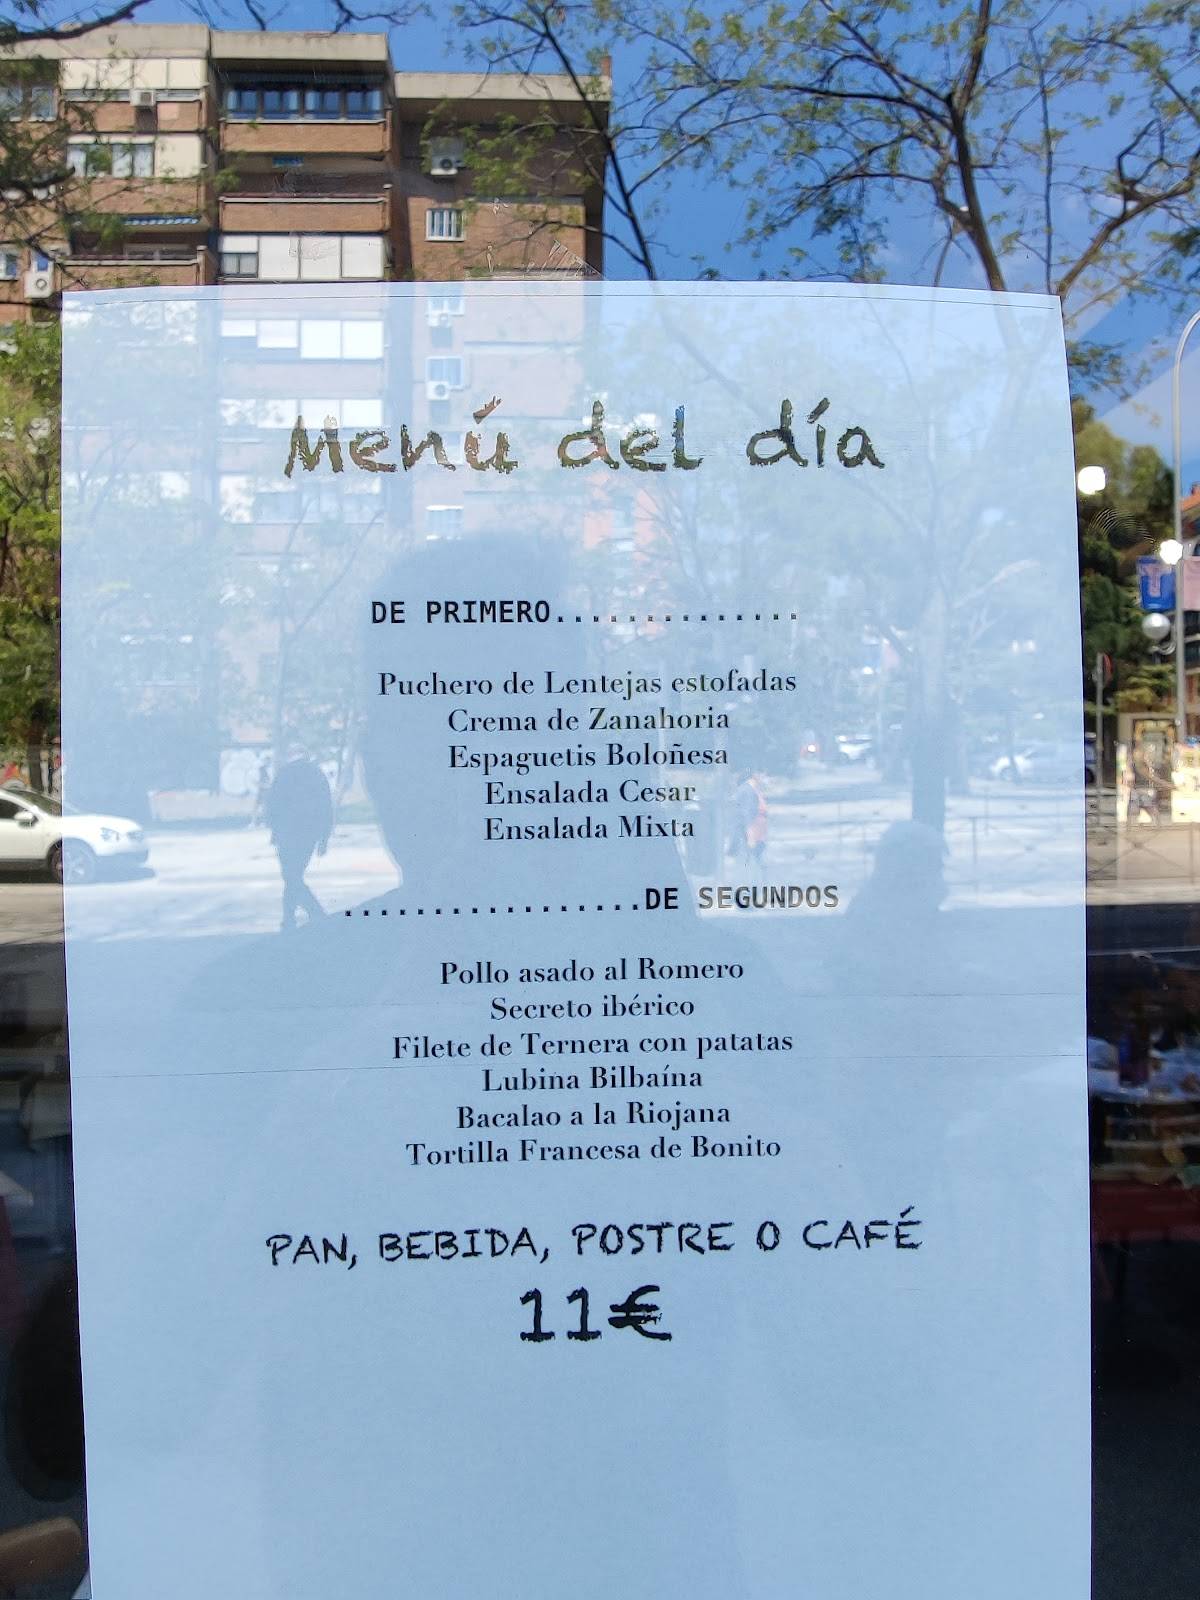 Menú del día
DE PRIMERO..............
Puchero de Lentejas estofadas
Crema de Zanahoria
Espaguetis Boloñesa
Ensalada Cesar
Ensalada Mixta
.................DE SEGUNDOS
Pollo asado al Romero
Secreto ibérico
Filete de Ternera con patatas
Lubina Bilbaína
Bacalao a la Riojana
Tortilla Francesa de Bonito
PAN, BEBIDA, POSTRE O CAFÉ
11€